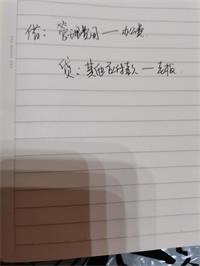 借：管理费用—办公费
贷：其他应付款—老板